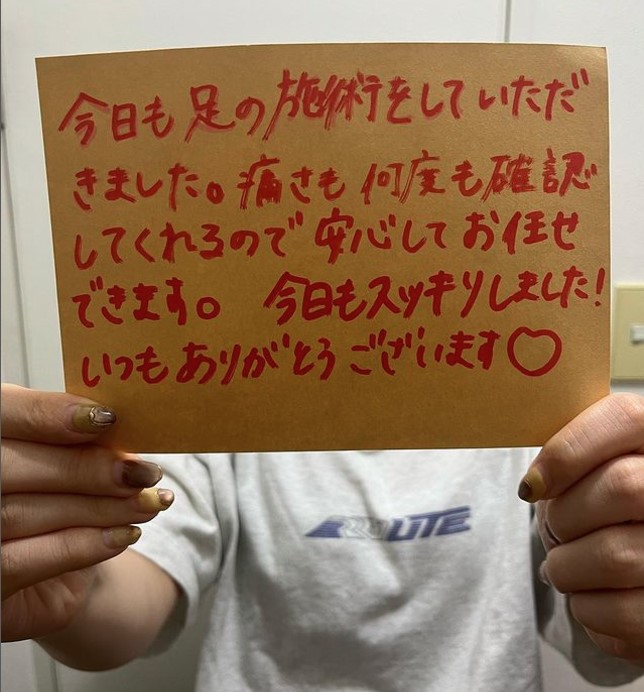 今日も足の施術をしていただ
きました。痛さも何度も確認
してくれるので安心してお任せ
できます。 今日もスッキリしました!
いつもありがとうございます♡